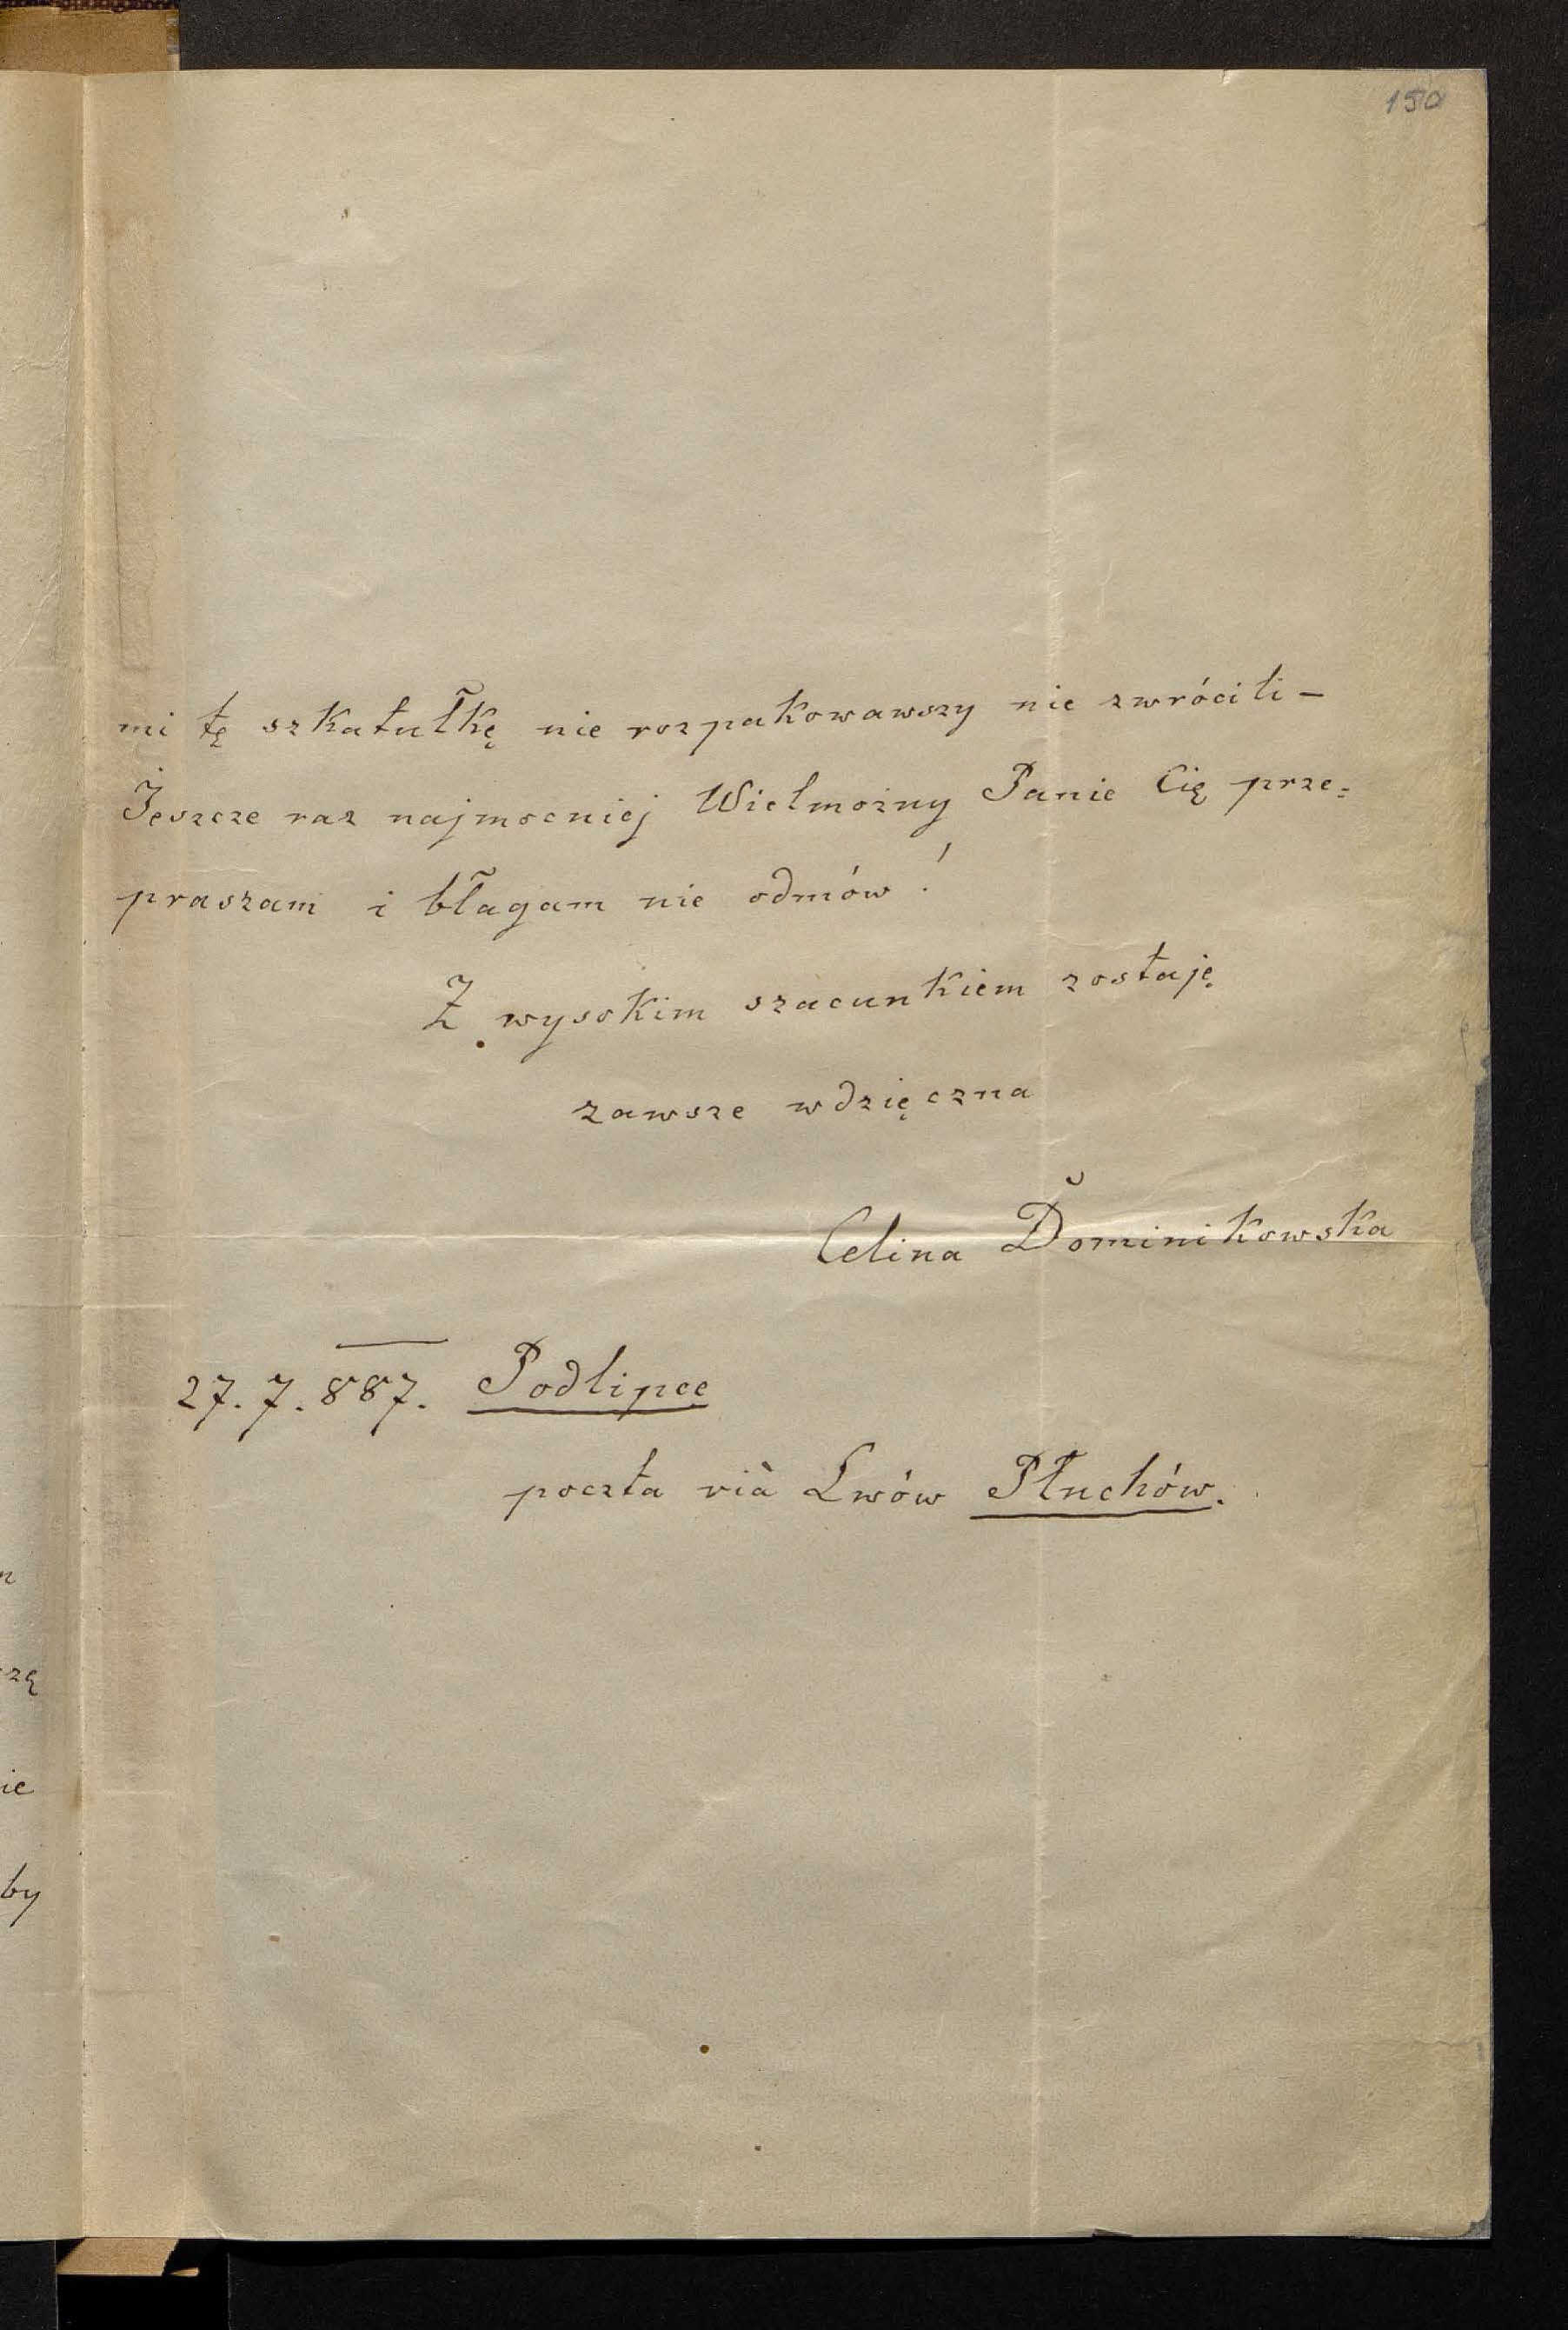 150
mi tę szkatułkę nie rozpakowawszy nie zwrócili –
Jeszcze raz najmocniej Wielmożny Panie Cię prze=
praszam i błagam nie odmów!
Z wysokim szacunkiem zostaję
zawsze wdzięczna
Celina Dominikowska
27. 7. 887. Podlipce
poczta vià Lwów Płuchów.
zę
ie
by